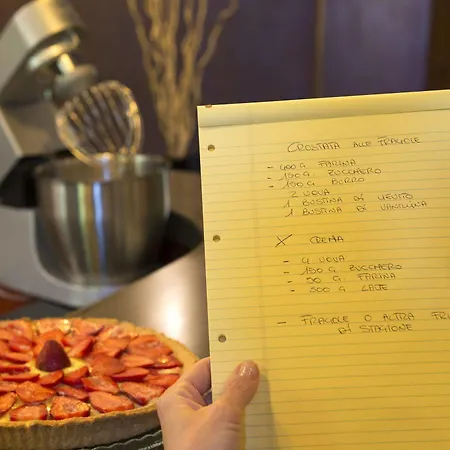 CROSTATA ALLE FRAGOLE
- 400 G FARINA
- 150 G. ZUCCHERO
- 150 G BURRO
2 UOVA
1 BUSTINA DI LIEVITO
1 BUSTINA DI VANILLINA
X CREMA
- 4 UOVA
- 150 G. ZUCCHERO
- 50 G FARINA
- 500 G. LATTE
- FRAGOLE O ALTRA
DI STAGIONE